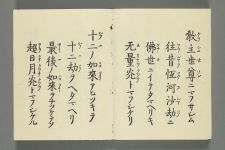 敎主世尊ニマフサシム
往昔恒河沙劫ニ
佛世ニイデタマヘリキ
无量光トマフシケリ
十二ノ如來アヒツギテ
十二劫ヲヘタマヘリ
最後ノ如來ヲナヅケテゾ
超日月光トマフシケル